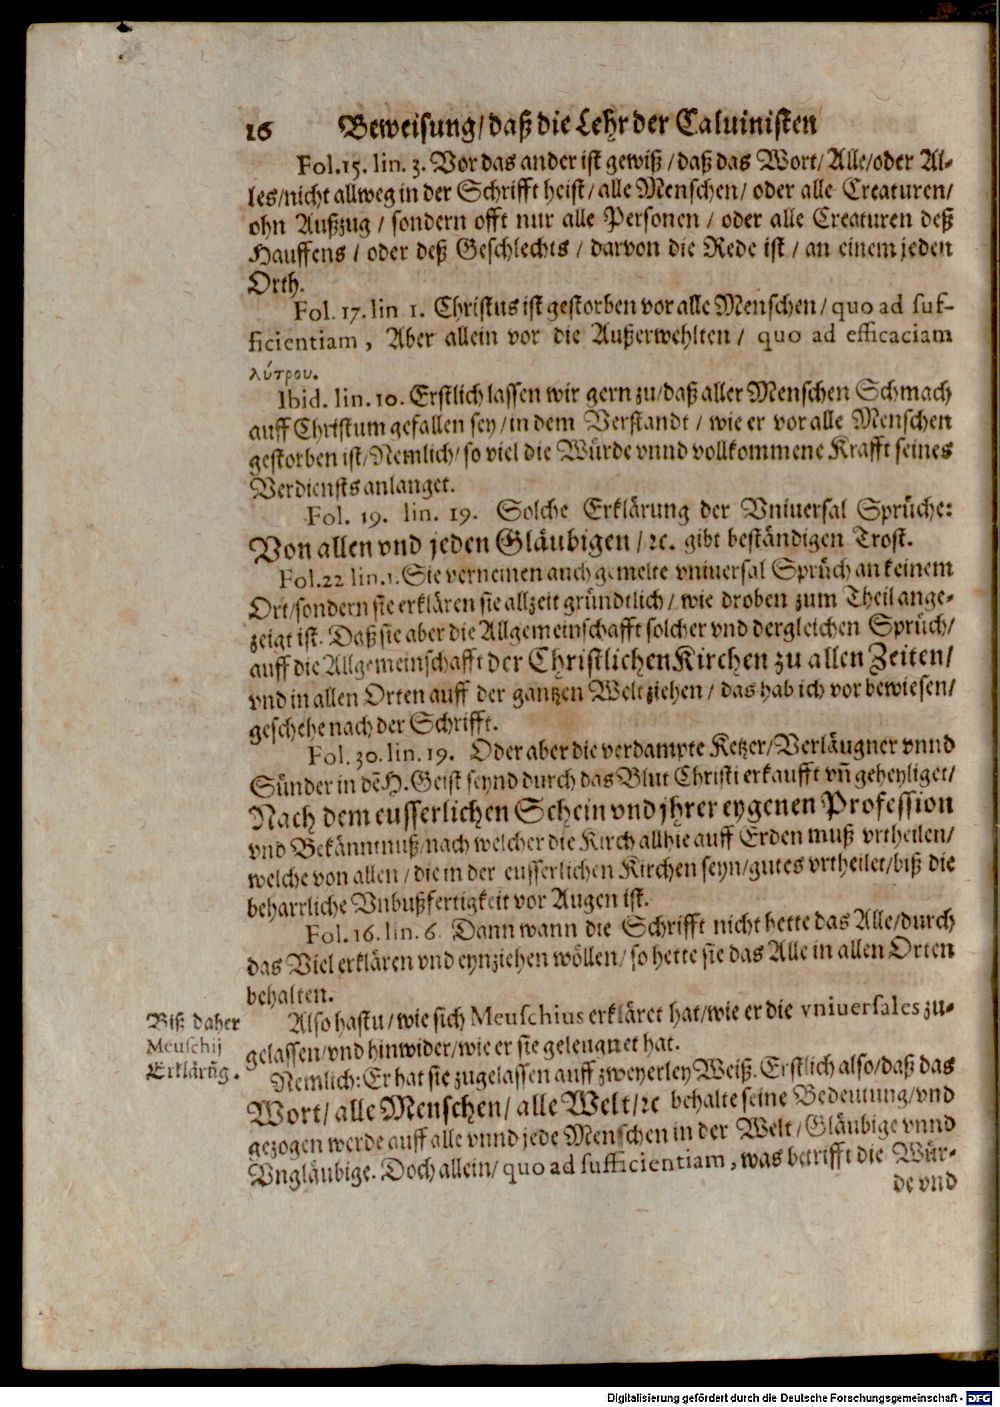 16 Beweisung/ daß die Lehr der Caluinisten
Fol. 15. lin. 3. Vor das ander ist gewiß/ daß das Wort/ Alle/ oder Al-
les/ nicht allweg in der Schrifft heist/ alle Menschen/ oder alle Creaturen/
ohn Außzug/ sondern offt nur alle Personen/ oder alle Creaturen deß
Hauffens/ oder deß Geschlechts/ darvon die Rede ist/ an einem jeden
Orth.
Fol. 17. lin 1. Christus ist gestorben vor alle Menschen/ quo ad suf-
ficientiam, Aber allein vor die Außerwehlten/ quo ad efficaciam
λύτρου.
Ibid. lin. 10. Erstlich lassen wir gern zu/ daß aller Menschen Schmach
auff Christum gefallen sey/ in dem Verstandt/ wie er vor alle Menschen
gestorben ist/ Nemlich/ so viel die Würde vnnd vollkommene Krafft seines
Verdiensts anlanget.
Fol. 19. lin. 19. Solche Erklärung der Vniuersal Sprüche:
Von allen vnd jeden Gläubigen/ ꝛc. gibt beständigen Trost.
Fol. 22 lin. 1. Sie verneinen auch gemelte vniuersal Sprüch an keinem
Ort/ sondern sie erklären sie allzeit gründtlich/ wie droben zum Theil ange-
zeigt ist. Daß sie aber die Allgemeinschafft solcher vnd dergleichen Sprüch/
auff die Allgemeinschafft der Christlichen Kirchen zu allen Zeiten/
vnd in allen Orten auff der gantzen Welt ziehen/ das hab ich vor bewiesen/
geschehe nach der Schrifft.
Fol. 30. lin. 19. Oder aber die verdampte Ketzer/ Verläugner vnnd
Sünder in dẽ H. Geist seynd durch das Blut Christi erkaufft vñ geheyliget/
Nach dem eusserlichen Schein vnd jhrer eygenen Profession
vnd Bekänntnuß/ nach welcher die Kirch allhie auff Erden muß vrtheilen/
welche von allen/ die in der eusserlichen Kirchen seyn/ gutes vrtheilet/ biß die
beharrliche Vnbußfertigkeit vor Augen ist.
Fol. 16. lin. 6. Dann wann die Schrifft nicht hette das Alle/ durch
das Viel erklären vnd eynziehen wöllen/ so hette sie das Alle in allen Orten
behalten.
Biß daher
Meuschij
Erklärũg.
Also hastu/ wie sich Meuschius erkläret hat/ wie er die vniuersales zu-
gelassen/ vnd hinwider/ wie er sie geleugnet hat.
Nemlich: Er hat sie zugelassen auff zweyerley Weiß. Erstlich also/ daß das
Wort/ alle Menschen/ alle Welt/ ꝛc behalte seine Bedeutung/ vnd
gezogen werde auff alle vnnd jede Menschen in der Welt/ Gläubige vnnd
Vngläubige. Doch allein/ quo ad sufficientiam, was betrifft die Wür-
de vnd
Digitalisierung gefördert durch die Deutsche Forschungsgemeinschaft - DFG